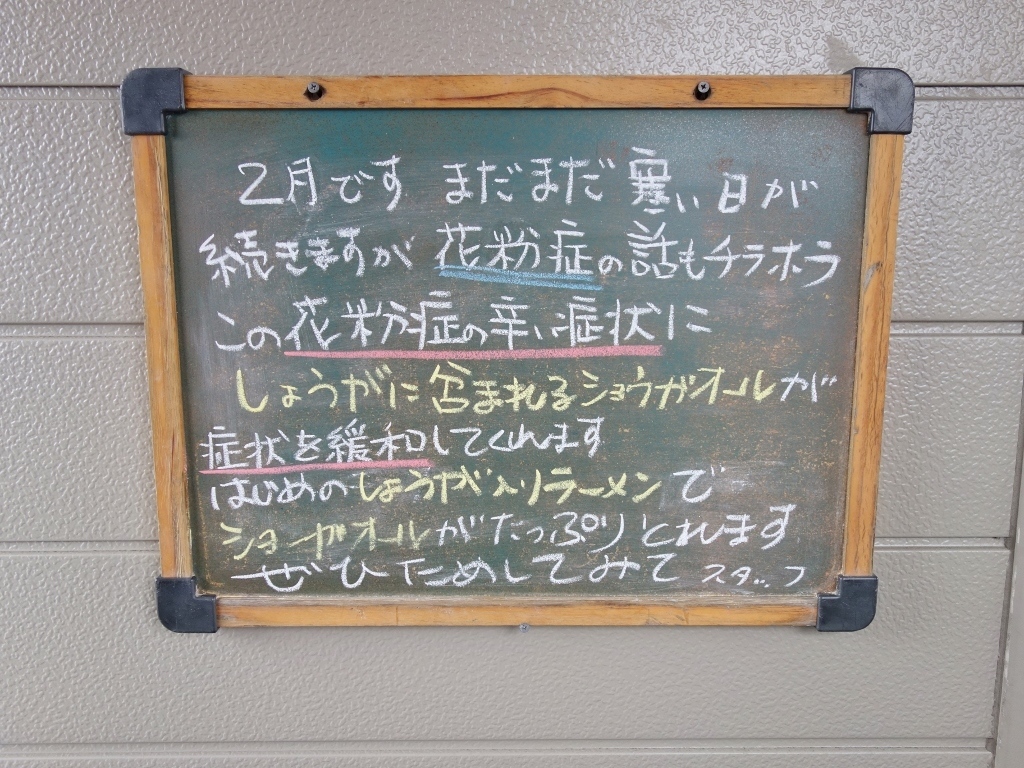 2月です まだまだ寒い日が
続きますが 花粉症の話もチラホラ
この花粉症の辛い症状に
しょうがに含まれるショウガオールが
症状を緩和してくれます
はじめのしょうが入りラーメンで
ショーガオールがたっぷりとれます
ぜひためしてみて スタッフ